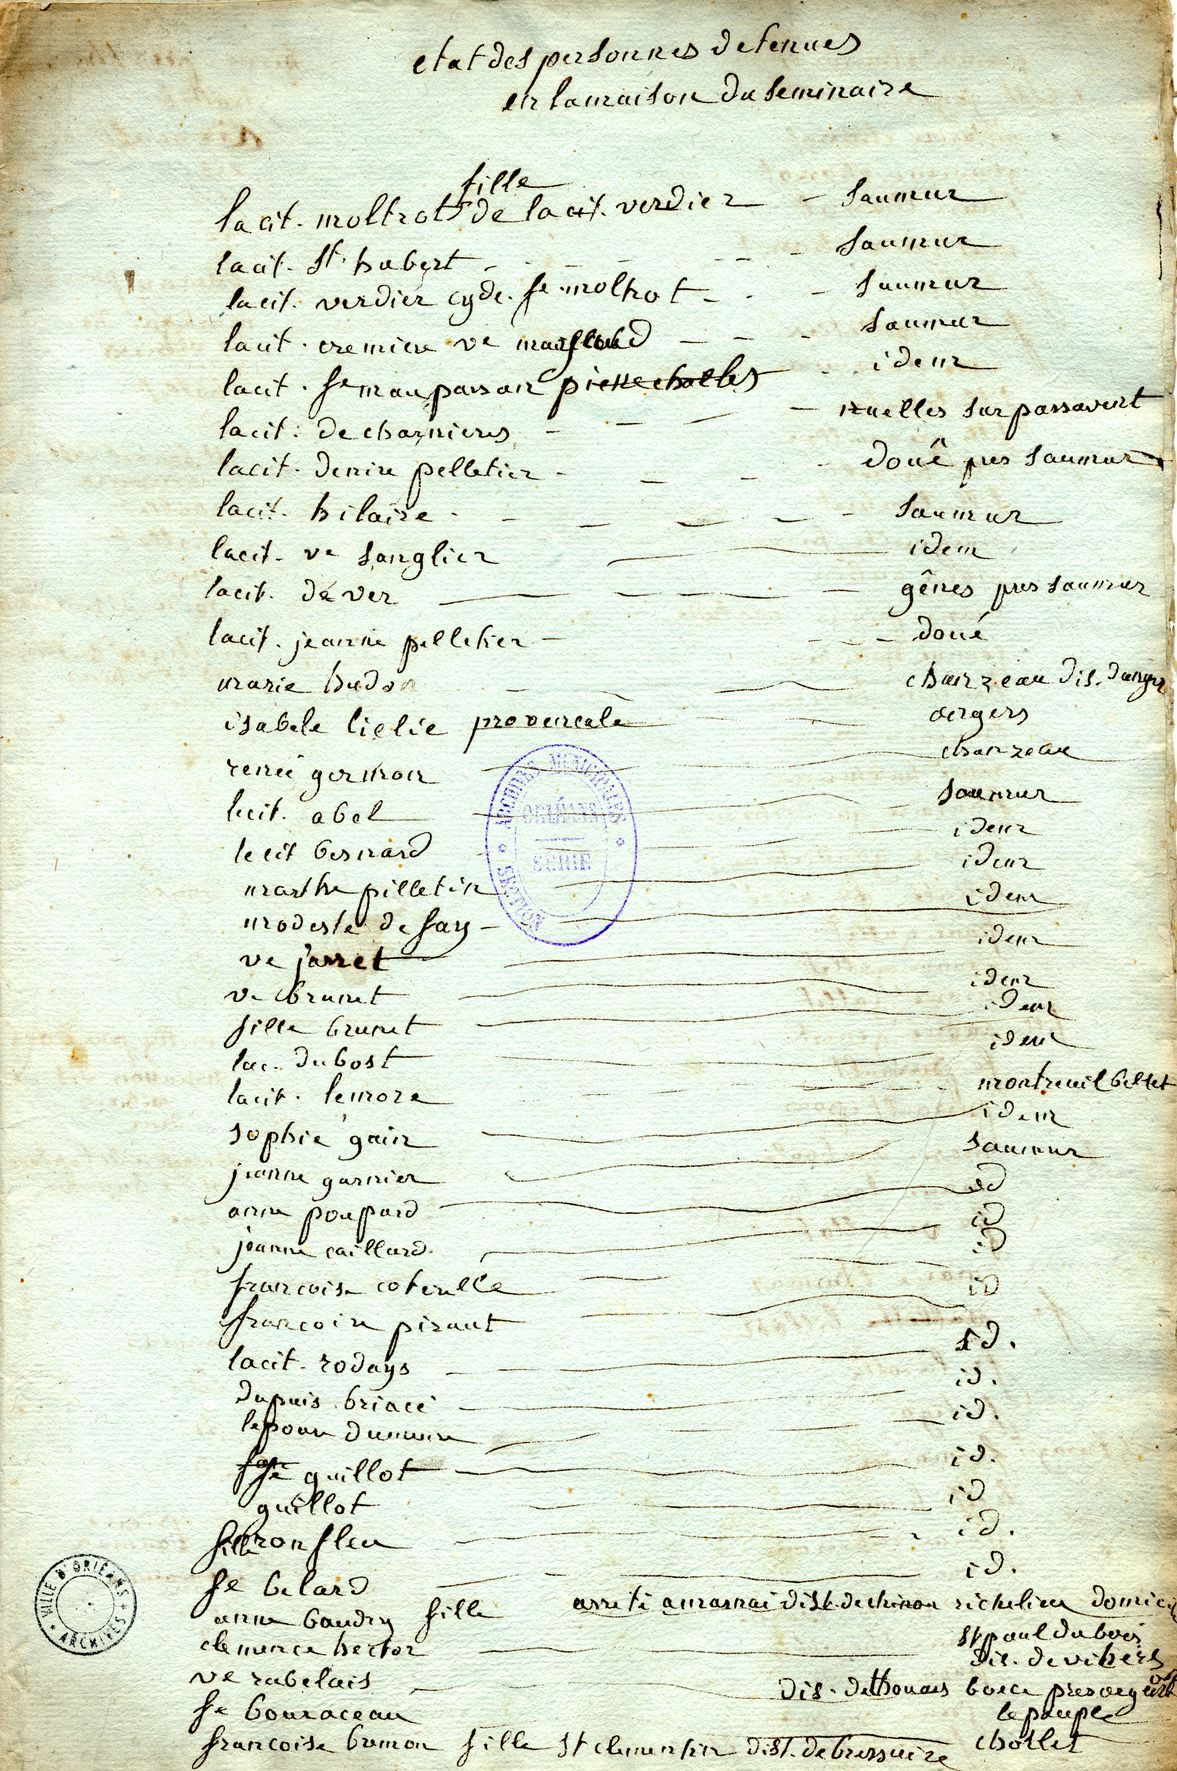 etat des personnes detenues
en la maison du seminaire
fille
la cit. moltrot de la cit. verdier - saumur
la cit. st. hubert - saumur
la cit. verdier fe moltrot - saumur
la cit. cremiere ve - saumur
la cit. fe idem
la cit. de charnieres - nuelles sur passavent
la cit. denire pelletier - doué pres saumur
la cit. hilaire - saumur
la cit. ve sanglier idem
la cit. de ver gênes pres saumur
la cit. jeanne pelletier - doué
marie hudon chanzeau dis. dangers
isabele lielie provencale angers
renée germon chanzeau
le cit. abel saumur
le cit besnard idem
marthe pilletin idem
modeste de fay - idem
ve jarret idem
ve brunet idem
fille brunet idem
la c. dubost idem
la cit. lemore montreuil bellet
sophie gain idem
jeanne garnier saumur
anne poupard id
jeanne caillard id
francoise coterelle id
francoise piraut id
la cit. rodays id.
dupuis briacé id.
id.
fe guillot id.
guillot id
fille ronfleu id.
fe belard id.
anne baudry fille arreté a marnai dist. de chinon richelieu domicil
clemence hector st paul du bois
dis. de vihers
ve rabelais dis. de thouars
fe bouraceau le peuple
francoise bremon fille st clementin dist. de bressuire chollet
ARCHIVES MUNICIPALES
ORLÉANS
SÉRIE
VILLE D'ORLÉANS
ARCHIVES